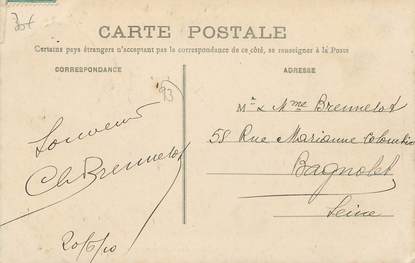 35f
CARTE POSTALE
Certains pays étrangers n'acceptant pas la correspondance de ce côté, se renseigner à la Poste
CORRESPONDANCE
ADRESSE
93
Mr & Mme Brennelot
58 Rue Marianne Colombier
Bagnolet
Seine
Souvenir
Ch Brennelot
20/6/10